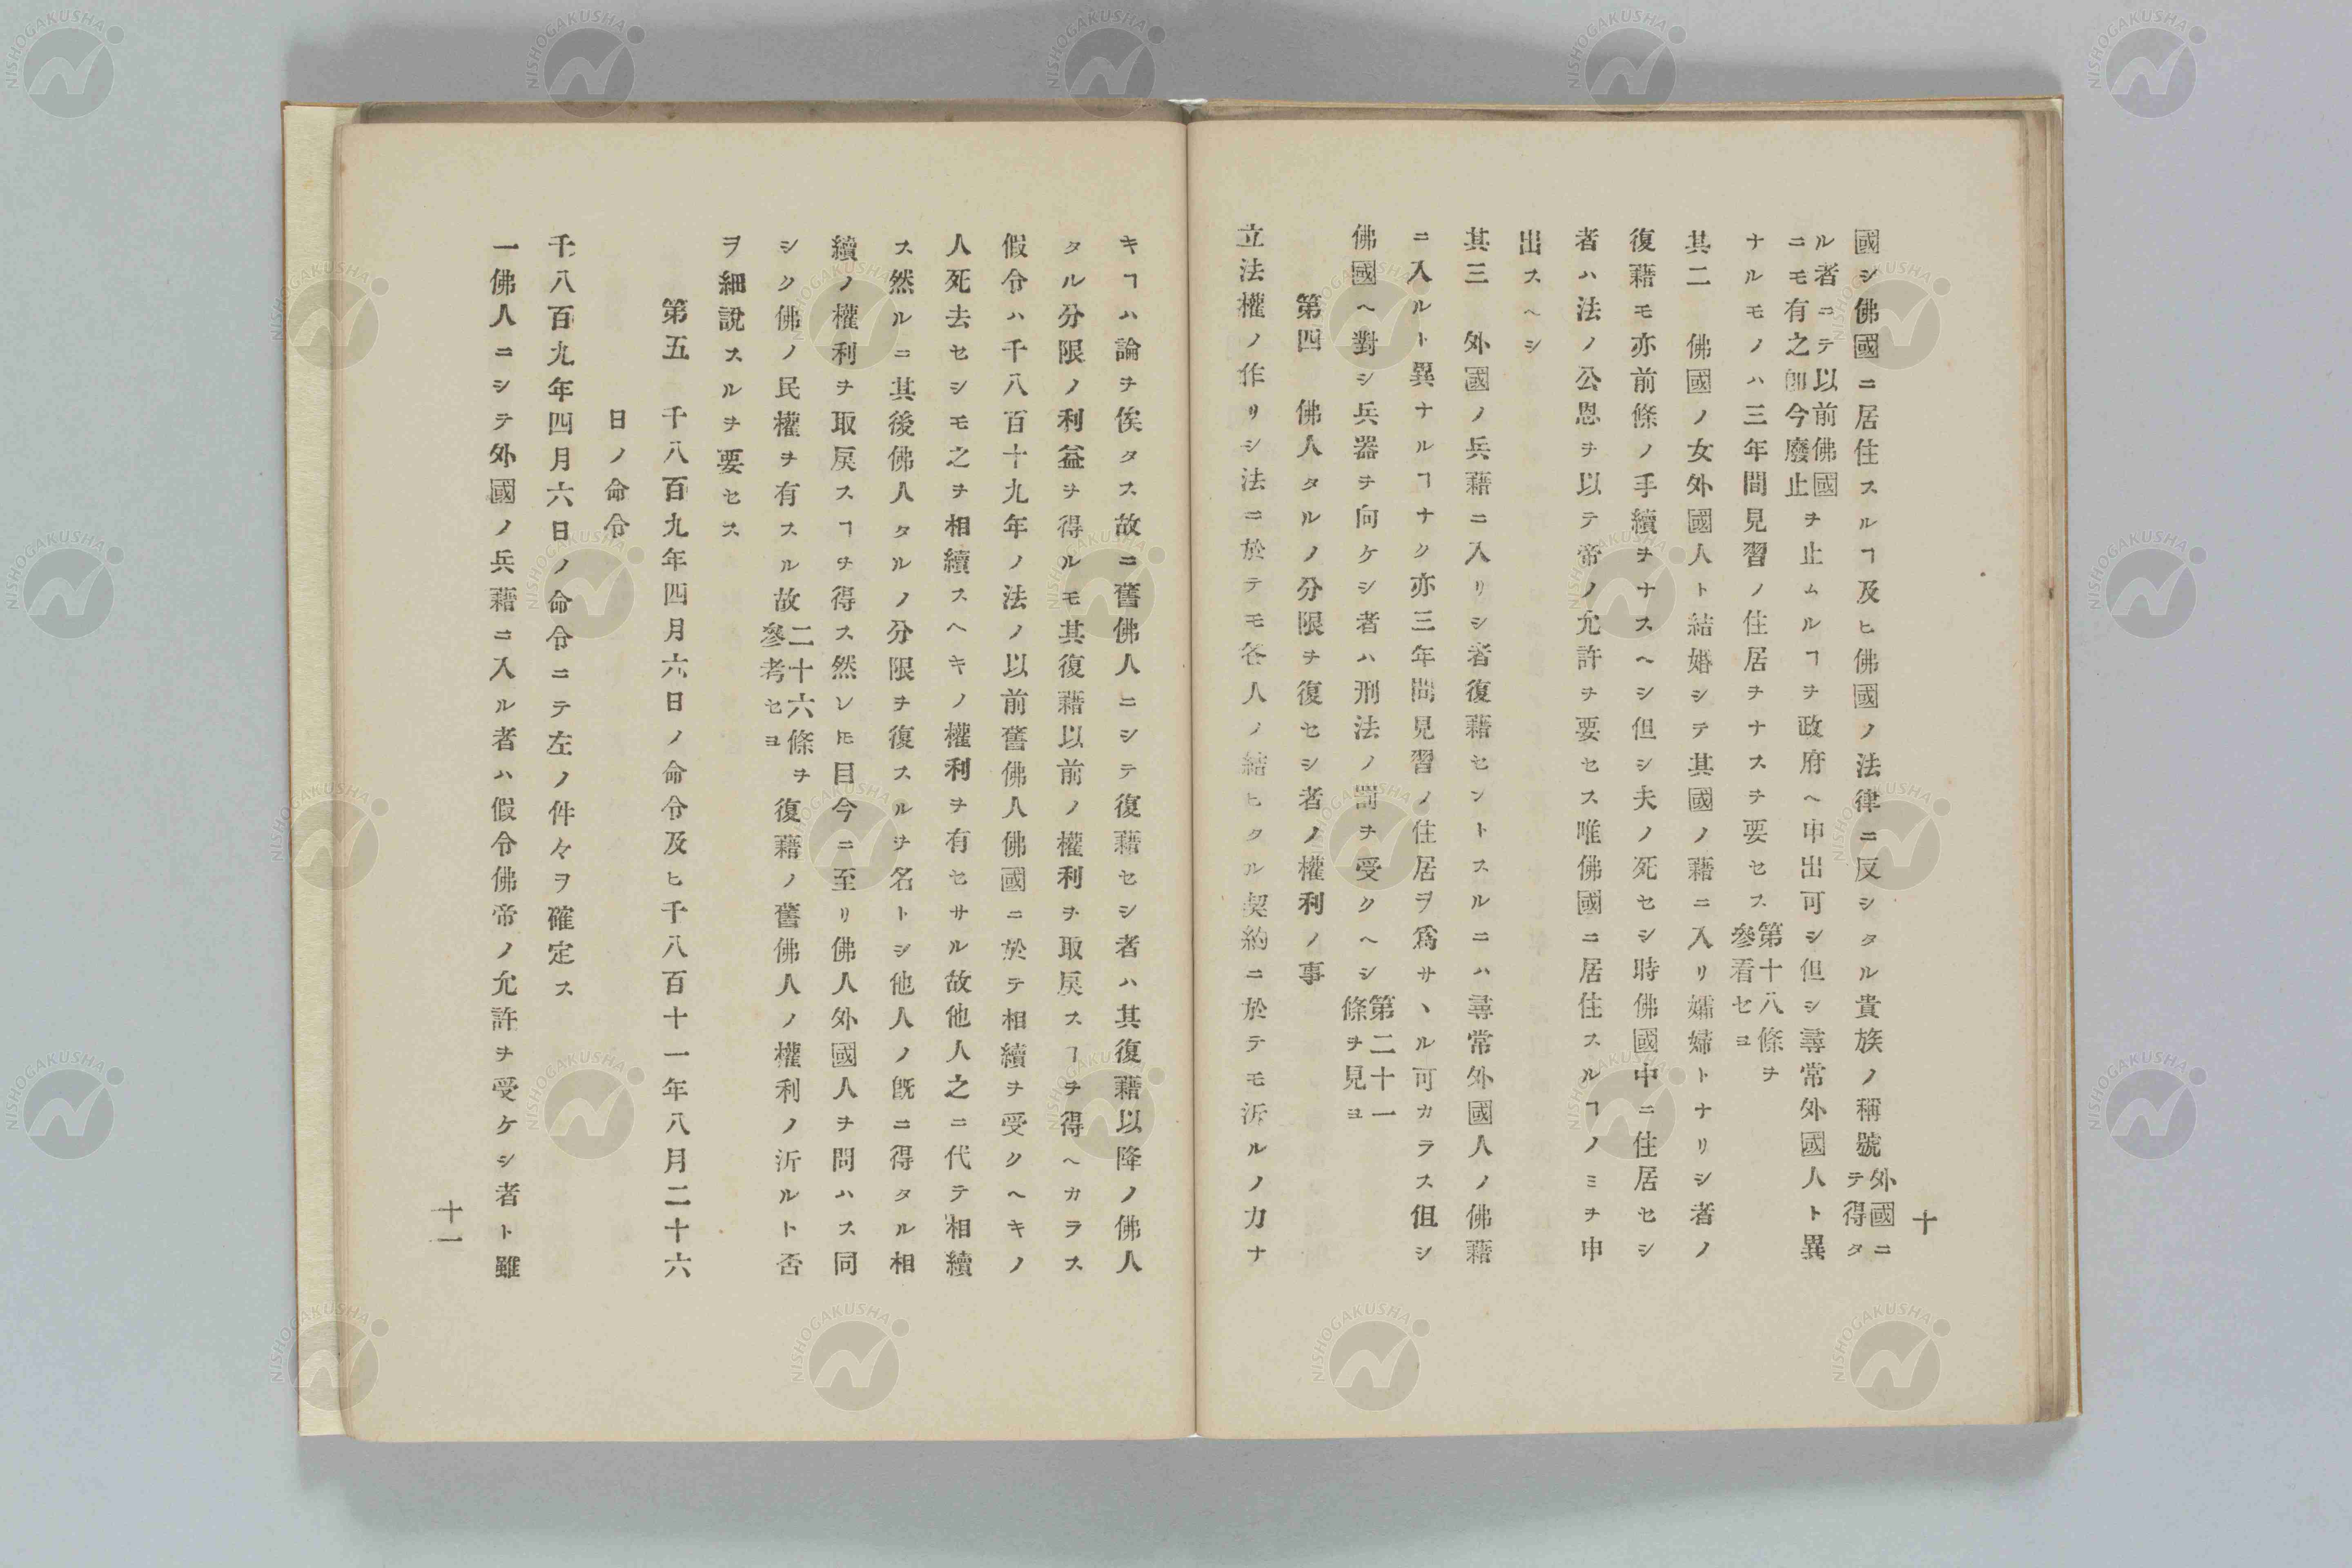 國シ佛國ニ居住スルヿ及ヒ佛國ノ法律ニ反シタル貴族ノ稱號外國ニテ得タ
ル者ニテ以前佛國ニモ有之卽今廢止ヲ止ムルヿヲ政府ヘ申出可シ但シ尋常外國人ト異
ナルモノハ三年間見習ノ住居ヲナスヲ要セス第十八條ヲ參看セヨ
其二　佛國ノ女外國人ト結婚シテ其國ノ藉ニ入リ孀婦トナリシ者ノ
復藉モ亦前條ノ手續ヲナスヘシ但シ夫ノ死セシ時佛國中ニ住居セシ
者ハ法ノ公恩ヲ以テ帝ノ允許ヲ要セス唯佛國ニ居住スルヿノミヲ申
出スヘシ
其三　外國ノ兵藉ニ入リシ者復藉セントスルニハ尋常外國人ノ佛藉
ニ入ルト異ナルヿナク亦三年間見習ノ住居ヲ爲サヽル可カラス伹シ
佛國ヘ對シ兵器ヲ向ケシ者ハ刑法ノ罰ヲ受クヘシ第二十一條ヲ見ヨ
第四　佛人タルノ分限ヲ復セシ者ノ權利ノ事
立法權ノ作リシ法ニ於テモ各人ノ結ヒタル契約ニ於テモ泝ルノ力ナ
十
キヿハ論ヲ俟タス故ニ舊佛人ニシテ復藉セシ者ハ其復藉以降ノ佛人
タル分限ノ利益ヲ得ルモ其復藉以前ノ權利ヲ取戻スヿヲ得ヘカラス
假令ハ千八百十九年ノ法ノ以前舊佛人佛國ニ於テ相續ヲ受クヘキノ
人死去セシモ之ヲ相續スヘキノ權利ヲ有セサル故他人之ニ代テ相續
ス然ルニ其後佛人タルノ分限ヲ復スルヲ名トシ他人ノ旣ニ得タル相
續ノ權利ヲ取戻スヿヲ得ス然レ𪜈目今ニ至リ佛人外國人ヲ問ハス同
シク佛ノ民權ヲ有スル故二十六條ヲ參考セヨ復藉ノ舊佛人ノ權利ノ泝ルト否
ヲ細說スルヲ要セス
第五　千八百九年四月六日ノ命令及ヒ千八百十一年八月二十六
日ノ命令
千八百九年四月六日ノ命令ニテ左ノ件々ヲ確定ス
一佛人ニシテ外國ノ兵藉ニ入ル者ハ假令佛帝ノ允許ヲ受ケシ者ト雖
十一
NISHOGAKUSHA